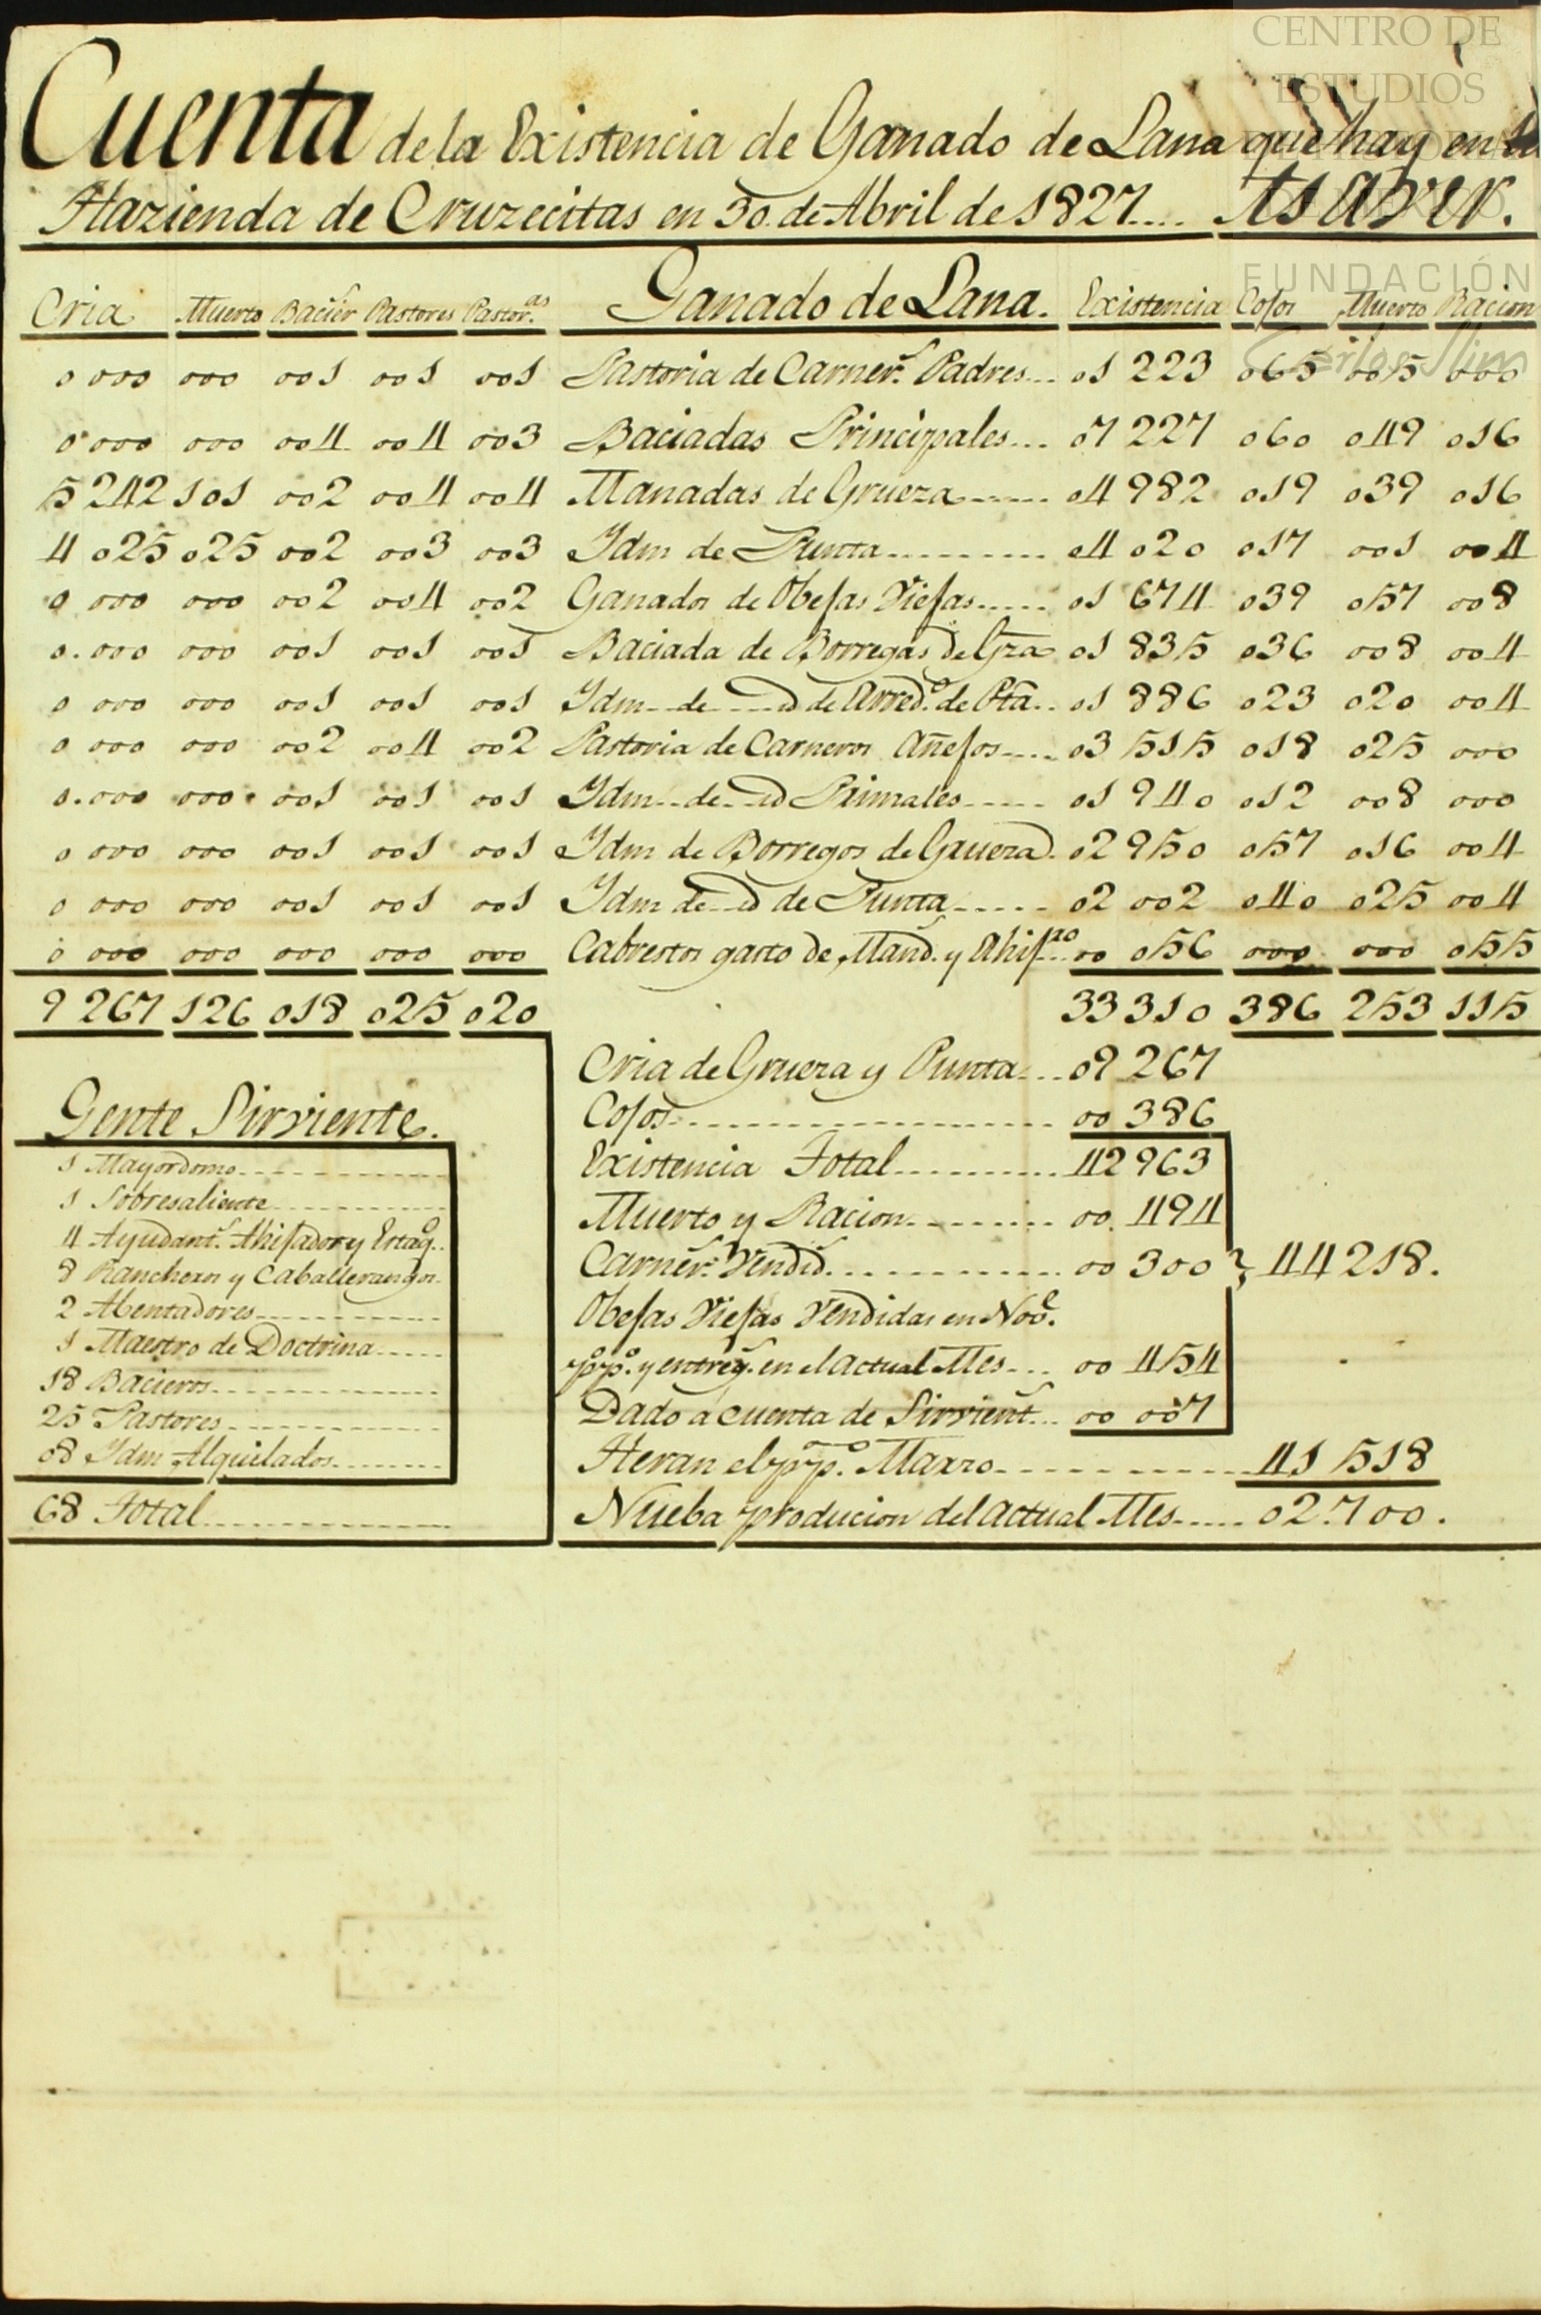 CENTRO DE
ESTUDIOS
FUNDACIÓN
Carlos Slim
Cuenta de la Existencia de Ganado de Lana que hay en la
Hazienda de Cruzecitas en 30. de Abril de 1827.... Asaver.
Cria Muerto Bacier.s Pastores Pastor.as Ganado de Lana. Existencia Cojos Muerto Racion
0 000 000 001 001 001 Pastoria de Carner.s Padres... 01 223 065 005 000
0 000 000 004 004 003 Baciadas Principales... 07 227 060 049 016
5 242 101 002 004 004 Manadas de Grueza...... 04 982 019 039 016
4 025 025 002 003 003 Idm de Punta......... 04 020 017 001 004
0 000 000 002 004 002 Ganados de Obejas Viejas..... 01 674 039 057 008
0.000 000 001 001 001 Baciada de Borregas de Gza 01 835 036 008 004
0 000 000 001 001 001 Idm--de---d de Arred.o de Pta.. 01 886 023 020 004
0 000 000 002 004 002 Pastoria de Carneros Añejos.... 03 515 018 025 000
0.000 000 001 001 001 Idm--de--id Primales..... 01 940 012 008 000
0 000 000 001 001 001 Idm de Borregos de Grueza. 02 950 057 016 004
0 000 000 001 001 001 Idm de--id de Punta..... 02 002 040 025 004
0 000 000 000 000 000 Cabrestos gasto de Mand.s y Ahij.ro 00 056 000 000 055
9 267 126 018 025 020 33 310 386 253 115
Cria de Grueza y Punta... 09 267
Cojos................... 00 386
Existencia Total......... 42 963
Muerto y Racion......... 00. 494
Carner.s Vendid.s............ 00 300 } 44 218.
Obejas Viejas Vendidas en Nov.e
pp.o y entreg.s en el actual Mes... 00 454
Dado a cuenta de Sirvient.s... 00 007
Heran el pp.o Marzo............. 41 518
Nueba producion del actual Mes..... 02.700.
Gente Sirviente.
1 Mayordomo............
1 Sobresaliente............
4 Ayudant.s Ahijador y Estaq.o..
8 Rancheros y Caballerangos.
2 Abentadores............
1 Maestro de Doctrina.....
18 Bacieros............
25 Pastores............
08 Idm Alquilados........
68 Total............